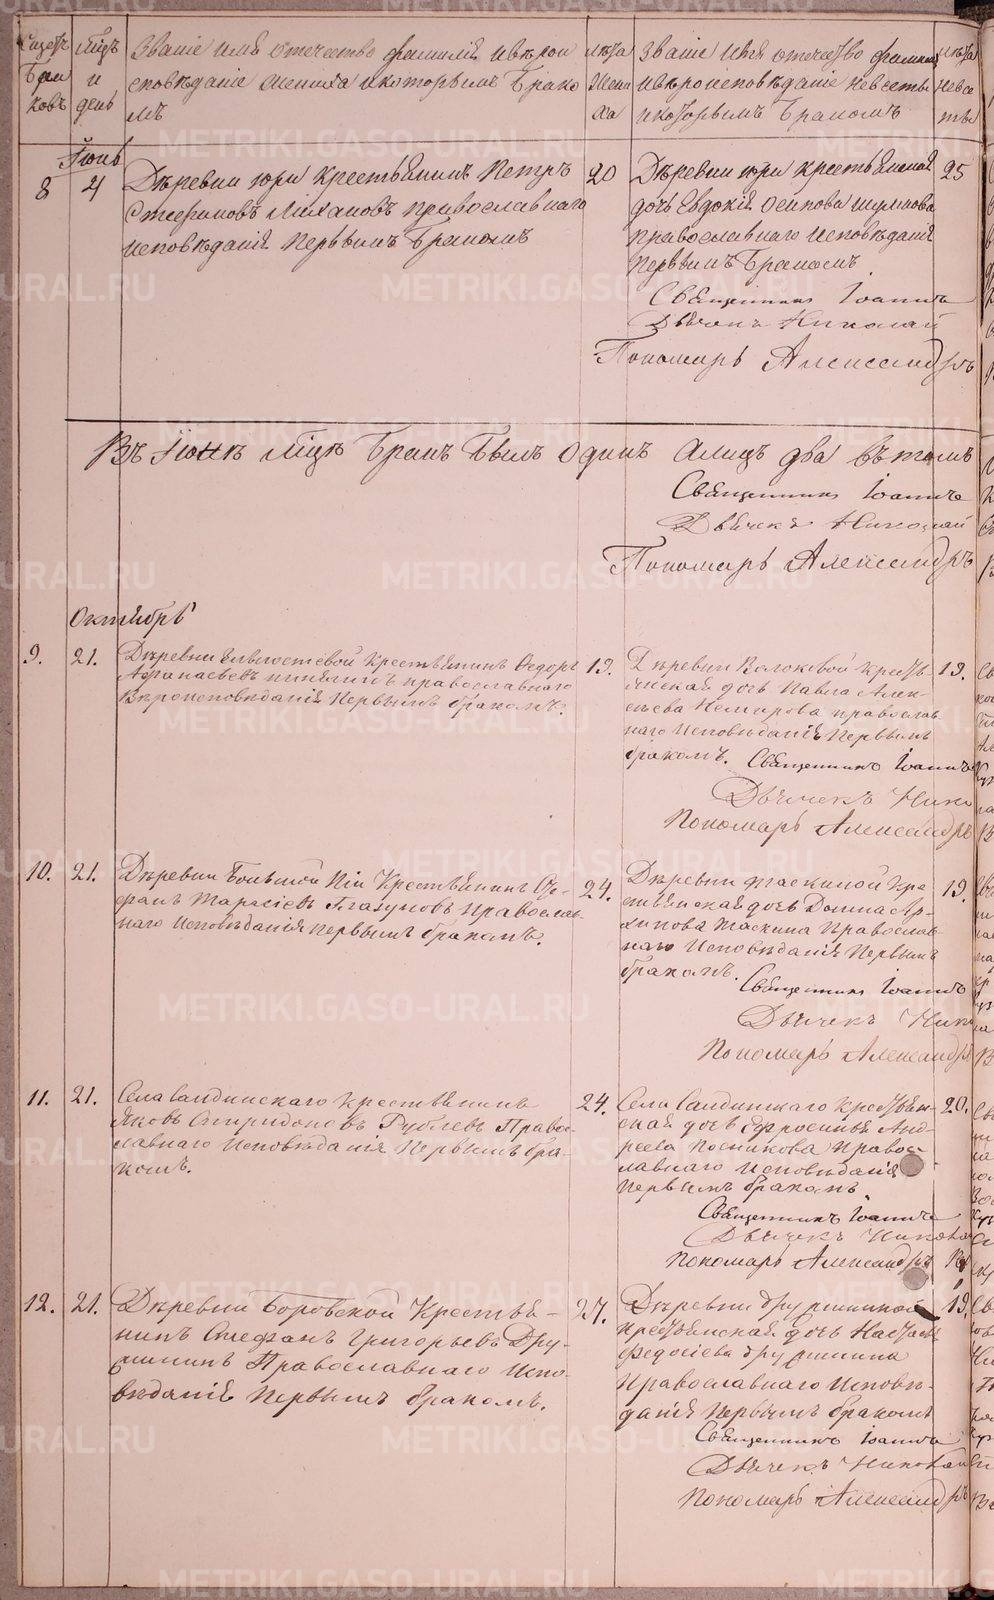 Счетъ Браковъ
Мцъ и день
Званіе имя отечество фамиліе и вѣрои
сповѣданіе жениха и которымъ Брако
мъ
лѣта жениха
Званіе имя отечество фамилія
и вѣроисповѣданіе невѣсты
и которымъ Бракомъ
лѣта невѣсты
Іюнь
8 4
Дѣревни юри крестьянинъ Петръ
Стефановъ православнаго
исповѣданія Первымъ Бракомъ
20
Дѣревни юри крестьянская
дочь Евдокія Осипова
православнаго исповѣданія
первымъ Бракомъ
25
Священникъ Іоаннъ
Дьячекъ Николай
Пономарь Александръ
Въ Іюнѣ мцѣ Бракъ Былъ Одинъ А лицъ два въ томъ
Священникъ Іоаннъ
Дьячекъ Николай
Пономарь Александръ
Октябрь
9. 21.
Дѣревни крестьянинъ Федоръ
Афанасьевъ православнаго
Вѣроисповѣданія Первымъ бракомъ.
19.
Дѣревни Волоковой кресть-
янская дочь Павла Алек-
сѣева православ-
наго Исповѣданія Первымъ
бракомъ. Священникъ Іоаннъ
19.
Дьячекъ Нико
Пономарь Александръ
10. 21.
Дѣревни Большой Крестьянинъ Сте-
фанъ Тарасіевъ Глазуновъ Православ-
наго Исповѣданія Первымъ бракомъ.
24.
Дѣревни Таскиной Кре
стьянская дочь Домна Ар-
хипова Таскина Православ-
наго Исповѣданія Первымъ
бракомъ. Священникъ Іоаннъ
19.
Дьячекъ Нико
Пономарь Александръ
11. 21.
Села Салдинскаго крестьянинъ
Яковъ Спиридоновъ Рублевъ Право-
славнаго Исповѣданія Первымъ бра-
комъ.
24.
Села Салдинскаго Крестьян-
ская дочь Ефросинья Анд-
реева Постникова Право-
славнаго Исповѣданія
Первымъ бракомъ.
20.
Священникъ Іоаннъ
Дьячекъ Николай
Пономарь Александръ
12. 21.
Дѣревни Боровской Крестья-
нинъ Стефанъ Григорьевъ Дру-
жининъ Православнаго Испо-
вѣданія Первымъ бракомъ.
27.
Дѣревни дружининой
Крестьянская дочь Настасья
Федосіева дружинина
Православнаго Исповѣ-
данія Первымъ бракомъ
19.
Священникъ Іоаннъ
Дьячекъ Николай
Пономарь Александръ
METRIKI.GASO-URAL.RU